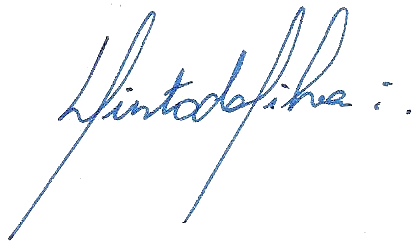 Pinto da Silva :.